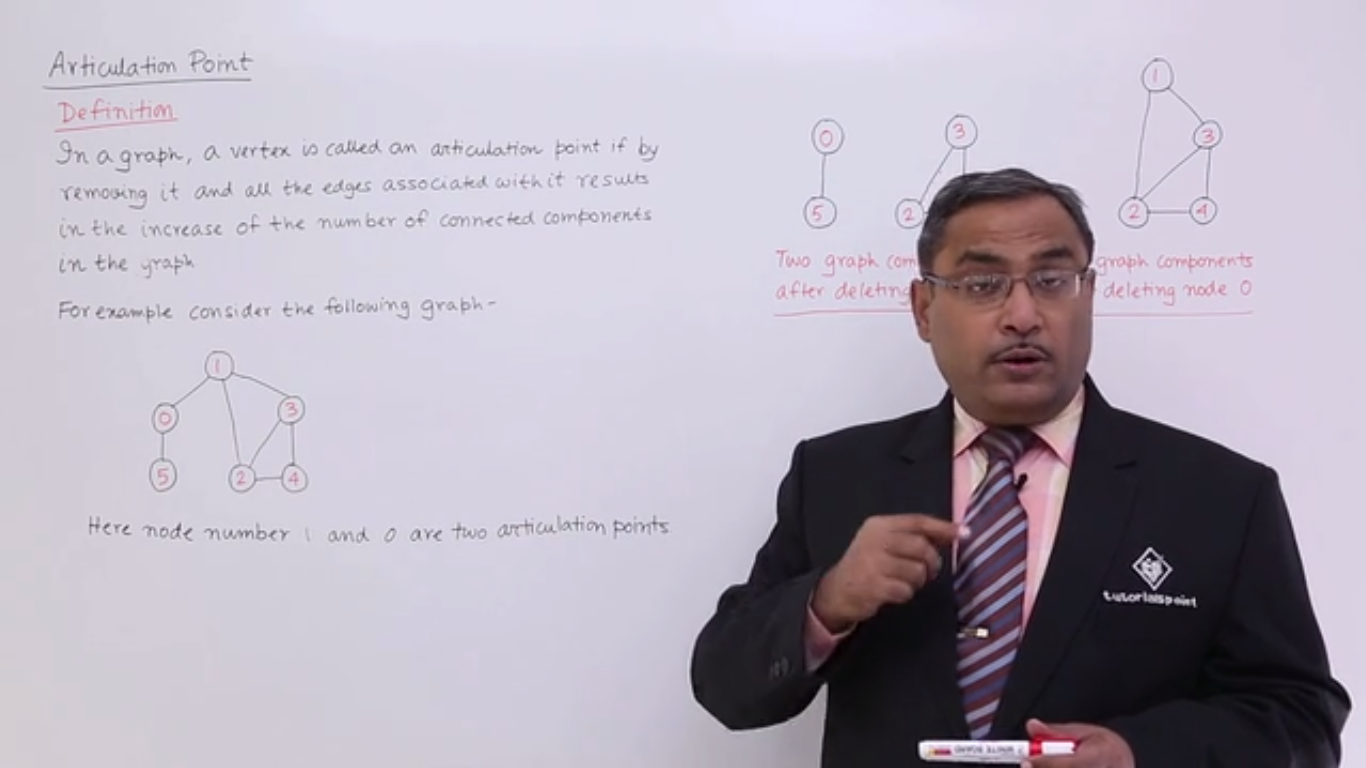 Articulation Point
Definition
In a graph, a vertex is called an articulation point if by
removing it and all the edges associated with it results
in the increase of the number of connected components
in the graph
For example consider the following graph-
1
0
3
5
2
4
Here node number 1 and 0 are two articulation points
0
5
3
2
Two graph
after deleting
1
3
2
4
graph components
deleting node 0
tutorialspoint